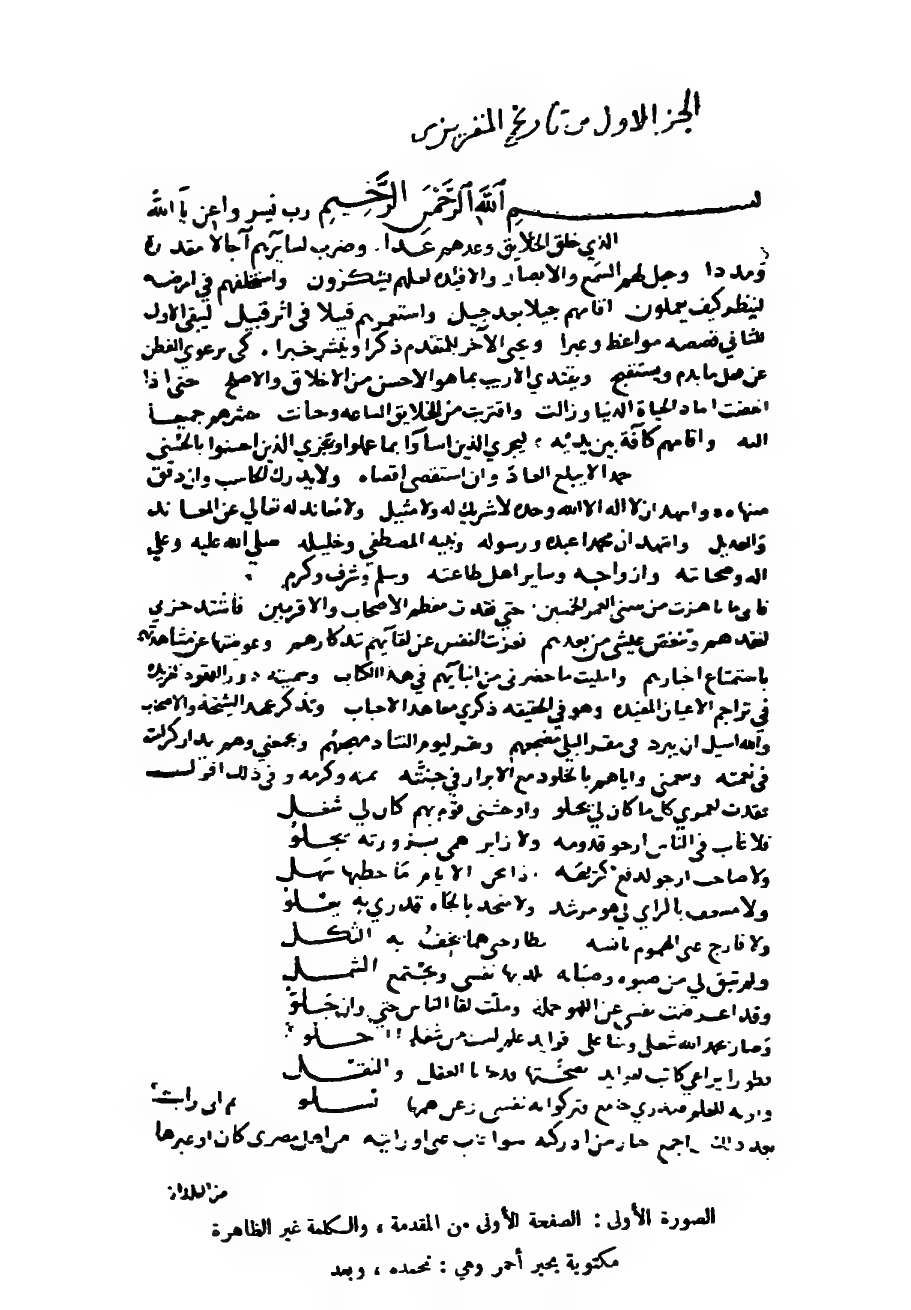 الجز الاول من تاريخ المقريزي
بسم الله الرحمن الرحيم رب يسر واعن يا الله
الذي خلق الخلايق وعدهم عدا. وضرب لسايرهم آجالا مقدرة
ومددا وجعل لهم السمع والابصار والافيدة لعلهم يشكرون واستخلفهم في ارضه
لينظر كيف يعملون اقامهم جيلا بعد جيل واستعمرهم قبيلا في اثر قبيل ليبقى الاول
للثاني قصصه مواعظ وعبرا ويحي الآخر للمتقدم ذكرا وينشر خبرا. كي يرعوي الفطن
عن فعل ما يذم ويستقبح ويقتدي الاريب بما هو الاحسن من الاخلاق والاصلح حتى اذا
انقضت اماد الحياة الدنيا وزالت واقتربت من الخلايق الساعه وحانت حشرهم جميعا
اليه واقامهم كآفة بين يديه؛ ليجزي الذين اسآوا بما عملوا ويجزي الذين احسنوا بالحسنى
حمدا لا يبلغ العاد وان استقصى اقصاه ولا يدرك الحاسب وان دقق
منتهاه واشهد ان لا اله الا الله وحده لا شريك له ولا مثيل ولا معاند له تعالي عن المعاند
والعديل واشهد ان محمدا عبده ورسوله ونبيه المصطفي وخليله صلي الله عليه وعلي
اله وصحابته وازواجه وساير اهل طاعته وسلم وشرف وكرم
فاني ما ناهزت من سني العمر الخمسين حتي فقدت معظم الاصحاب والاقربين فاشتد حزني
لفقدهم وتنغص عيشي من بعدهم فعزيت النفس عن لقآيهم بتذكارهم وعوضتها عن مشاهدتهم
باستمتاع اخبارهم وامليت ما حضرني من انبآيهم في هذا الكتاب وسميته درر العقود الفريدة
في تراجم الاعيان المفيده وهو في الحقيقه ذكري معاهد الاحباب وتذكر عهد الشيخة والاصحاب
والله اسيل ان يبرد في مقر البلى مضجعهم ويجمعني وهم بدار كرامته
في نعمته وايآهم بالخلود مع الابرار في جنته بمنه وكرمه وفي ذلك اقول
فقدت لعمري كل ما كان لي يحلو واوحشني قوم بهم كان لي شغل
فلا غاب في الناس ارجو قدومه ولا زاير همي بزورته يجلو
ولا صاحب ارجو لدفع كريهة اذا الايام ما خطبها سهل
ولا مسعف بالراي لي هو مرشد ولا منجد بالجاه قدري به يعلو
ولا فارج عني الهموم بانسه يطارحني هما يخف به الثكل
ولم تبق لي من صبوه وصبابه يلذ بها نفسي ويجتمع الشمل
وقد اعرضت نفسي عن اللهو جملة وملت لقا الناس حتي وان جلو
وصار بحمد الله شغلي فوايد علم لست من شغله اخلو
فطورا يراعي كاتب لفوايد بصحتها قد جانا العقل والنقل
للعلم صدري جامع نفسي عن همها تسلو ثم اني رايت
بعد ذلك اجمع اخبار من ادركته سوا غاب عني او رايته من اهل مصري كان او غيرها
من البلدان
الصورة الأولى: الصفحة الأولى من المقدمة، والكلمة غير الظاهرة
مكتوبة بحبر أحمر وهي: نحمده، وبعد